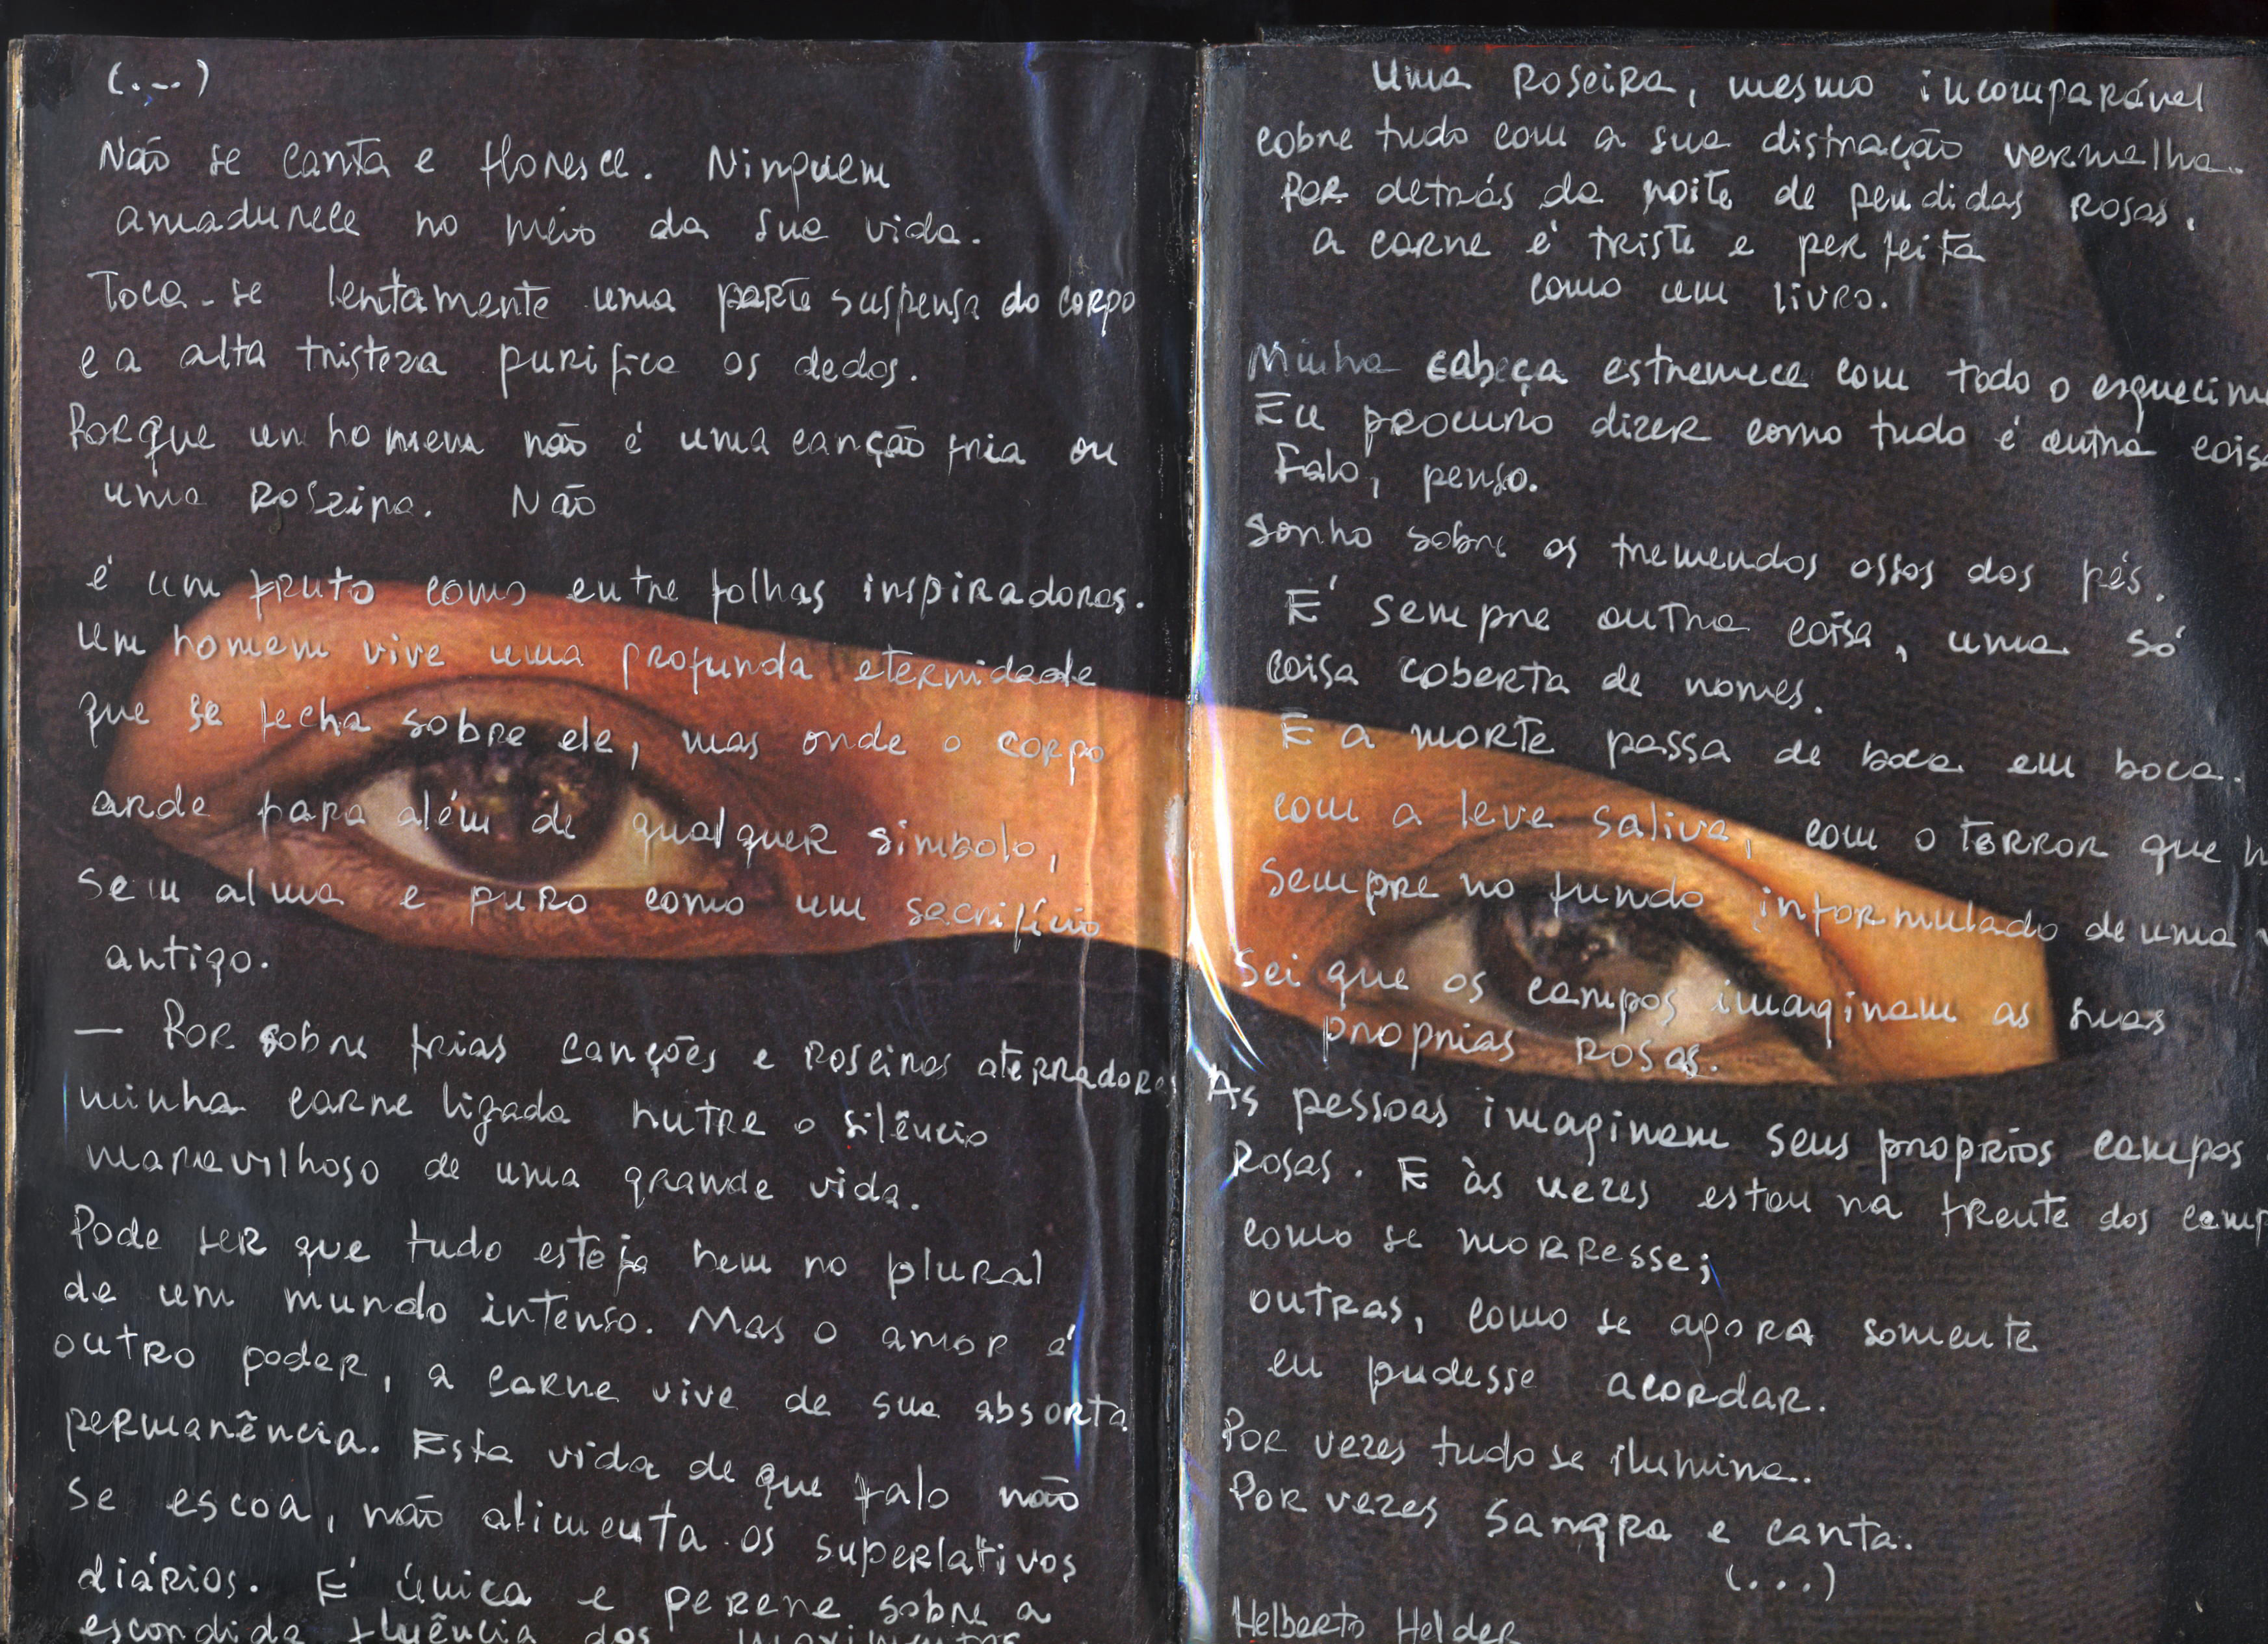 (...)
Não se canta e floresce. Ninguem
amadurece no meio da sua vida.
Toca-se lentamente uma parte suspensa do corpo
e a alta tristeza purifica os dedos.
Porque um homem não é uma canção fria ou
uma Roseira. Não
é um fruto como entre folhas inspiradoras.
Um homem vive uma profunda eternidade
que se fecha sobre ele, mas onde o corpo
arde para além de qualquer simbolo,
sem alma e puro como um sacrifício
antigo.
— Por sobre frias canções e roseiras aterradoras
minha carne ligada nutre o silêncio
maravilhoso de uma grande vida.
Pode ser que tudo esteja bem no plural
de um mundo intenso. Mas o amor é
outro poder, a carne vive de sua absorta
permanência. Esta vida de que falo não
se escoa, não alimenta os superlativos
diários. É única e perene sobre a
escondida fluência dos movimentos
Uma roseira, mesmo incomparável
cobre tudo com a sua distração vermelha.
Por detrás da noite de pendidas rosas,
a carne é triste e perfeita
como um livro.
Minha cabeça estremece com todo o esquecim
Eu procuro dizer como tudo é outra cois
Falo, penso.
Sonho sobre os tremendos ossos dos pés.
É sempre outra coisa, uma só
coisa coberta de nomes.
E a morte passa de boca em boca.
com a leve saliva, com o terror que h
sempre no fundo informulado de uma v
Sei que os campos imaginam as suas
proprias rosas.
As pessoas imaginam seus proprios campos
Rosas. E às vezes estou na frente dos camp
como se morresse;
outras, como se agora somente
eu pudesse acordar.
Por vezes tudo se ilumina.
Por vezes sangra e canta.
(...)
Helberto Helder